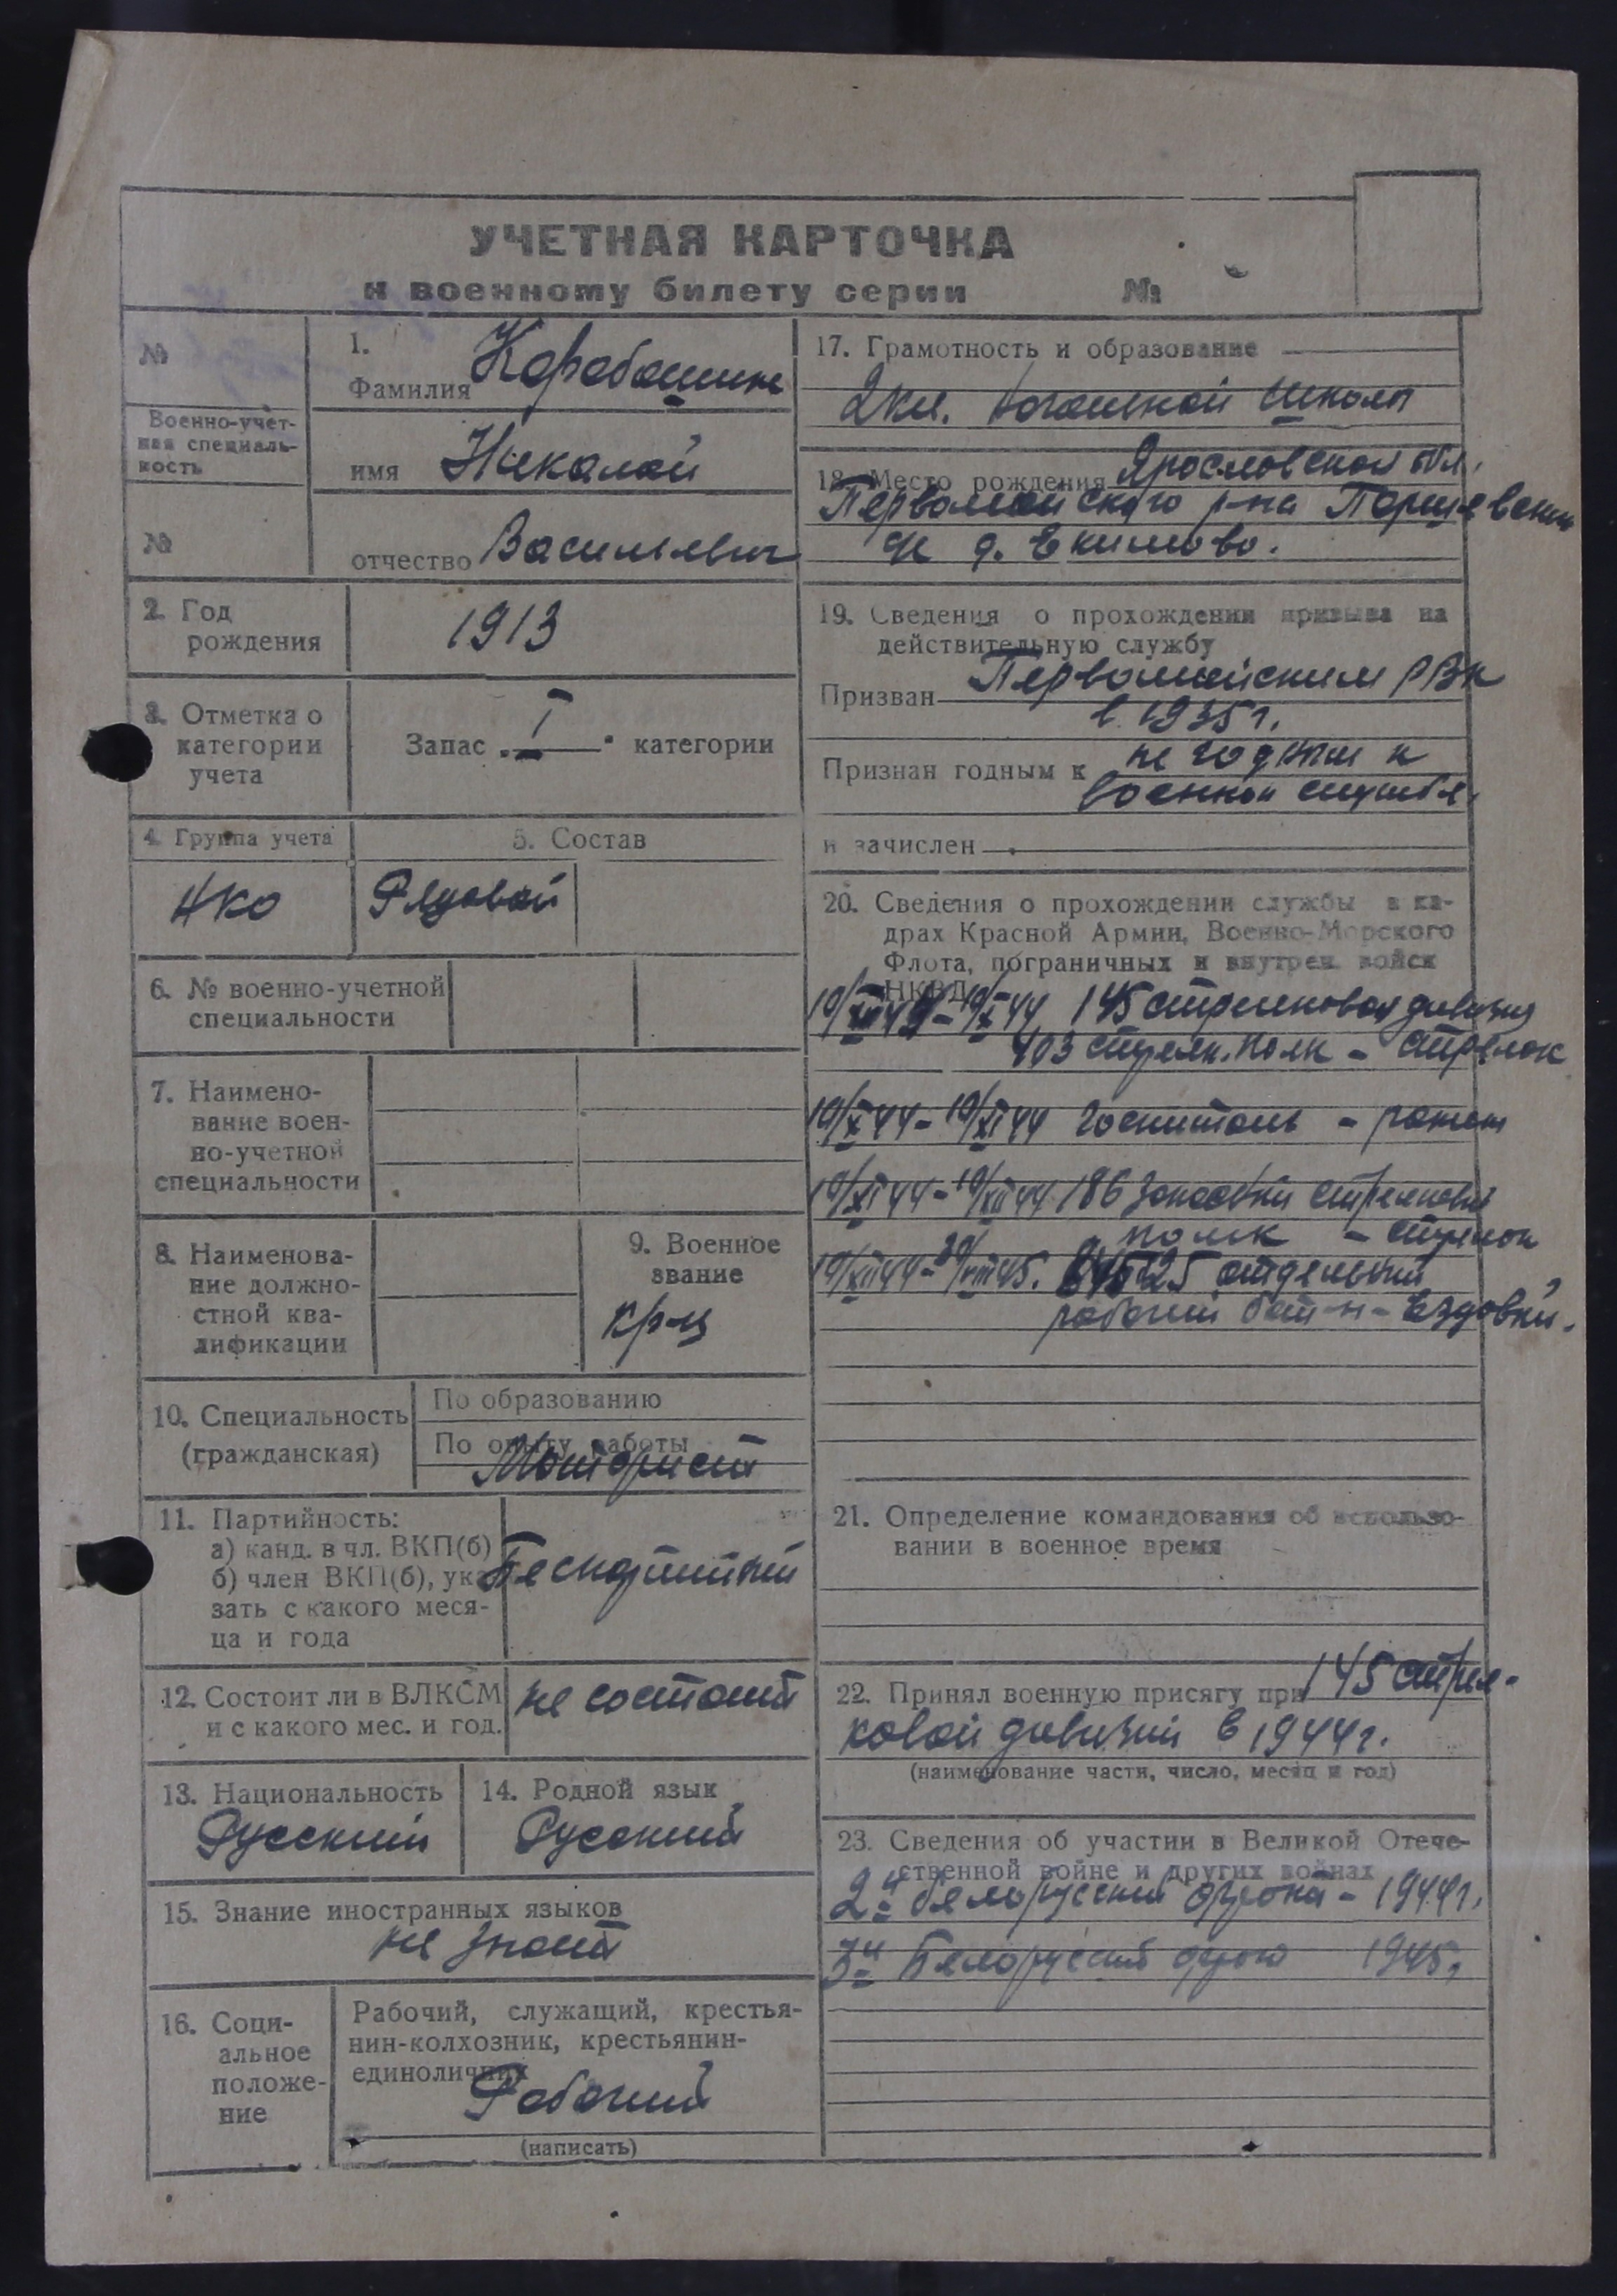 УЧЕТНАЯ КАРТОЧКА
к военному билету серии №
№
Военно-учет-
ная специаль-
ность
№
1.
Фамилия Карабашин
имя Николай
отчество Васильевич
2. Год
рождения
1913
3. Отметка о
категории
учета
Запас I категории
4. Группа учета
НКО
5. Состав
Рядовой
6. № военно-учетной
специальности
7. Наимено-
вание воен-
но-учетной
специальности
8. Наименова-
ние должно-
стной ква-
лификации
9. Военное
звание
кр-ц
10. Специальность
(гражданская)
По образованию
По опыту работы
Моторист
11. Партийность:
а) канд. в чл. ВКП(б)
б) член ВКП(б), ука-
зать с какого меся-
ца и года
Беспартийный
12. Состоит ли в ВЛКСМ
и с какого мес. и год.
не состоит
13. Национальность
Русский
14. Родной язык
Русский
15. Знание иностранных языков
не знает
16. Соци-
альное
положе-
ние
Рабочий, служащий, крестья-
нин-колхозник, крестьянин-
единоличник
Рабочий
(написать)
17. Грамотность и образование
2 кл. начальной школы
18. Место рождения Ярославской обл.
Первомайского р-на
д. Екимово.
19. Сведения о прохождении призыва на
действительную службу
Призван Первомайским РВК
в 1935 г.
Признан годным к не годным к
военной службе.
и зачислен
20. Сведения о прохождении службы в ка-
драх Красной Армии, Военно-Морского
Флота, пограничных и внутрен. войск
НКВД
145 стрелковая дивизия
403 стрелк. полк - стрелок
19/X 44 - 19/XI 44 госпиталь - ранен
19/XI 44 - 19/XII 44 186 запасной стрелковый
полк - стрелок
19/XII 44 - 45. 25 отдельный
рабочий бат-н - Ездовый.
21. Определение командования об использо-
вании в военное время
22. Принял военную присягу при 145 стрел-
ковой дивизии в 1944 г.
(наименование части, число, месяц и год)
23. Сведения об участии в Великой Отече-
ственной войне и других войнах
2й белорусский фронт - 1944 г.
3й Белорусский фронт 1945 г.